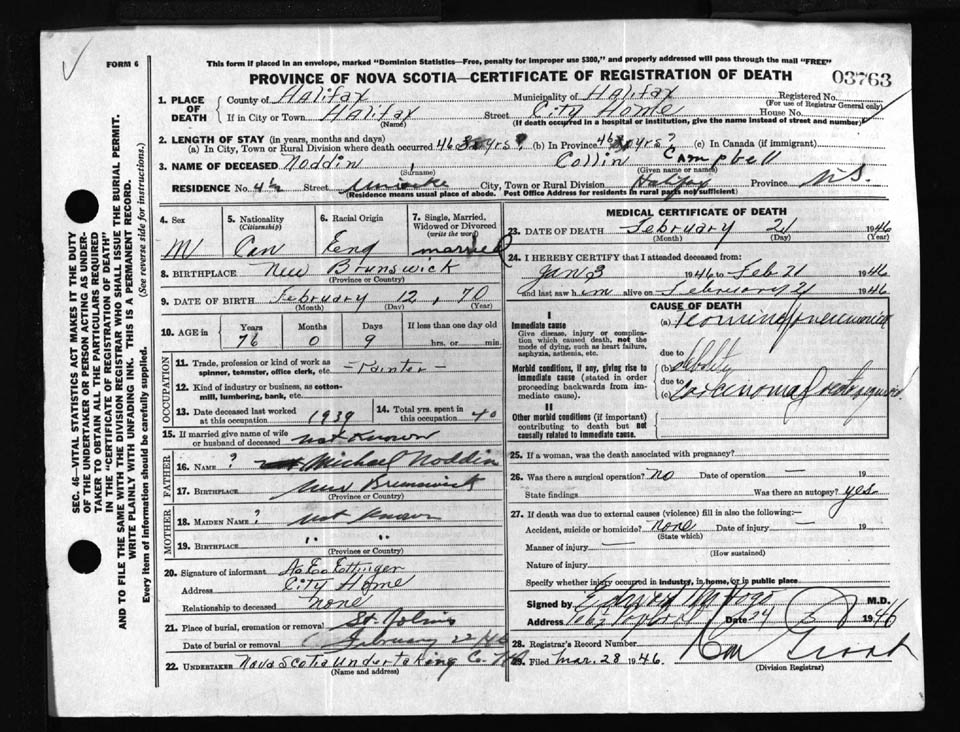 FORM 6
This form if placed in an envelope, marked "Dominion Statistics—Free, penalty for improper use $300," and properly addressed will pass through the mail "FREE"
PROVINCE OF NOVA SCOTIA—CERTIFICATE OF REGISTRATION OF DEATH 03763
1. PLACE OF DEATH County of Halifax Municipality of Halifax Registered No. (For use of Registrar General only)
If in City or Town Halifax (Name) Street City Home House No.
(If death occurred in a hospital or institution, give the name instead of street and number)
2. LENGTH OF STAY (in years, months and days)
(a) In City, Town or Rural Division where death occurred 46 yrs? (b) In Province 46 yrs? (c) In Canada (if immigrant)
3. NAME OF DECEASED Noddin (Surname) Collin Campbell (Given name or names)
RESIDENCE No. Street City, Town or Rural Division Halifax Province N.S.
(Residence means usual place of abode. Post Office Address for residents in rural parts not sufficient)
4. Sex M
5. Nationality (Citizenship) Can
6. Racial Origin Eng
7. Single, Married, Widowed or Divorced (write the word) married
8. BIRTHPLACE New Brunswick (Province or Country)
9. DATE OF BIRTH February 12, 70 (Month) (Day) (Year)
10. AGE in Years 76 Months 0 Days 9 If less than one day old hrs. or min.
OCCUPATION
11. Trade, profession or kind of work as spinner, teamster, office clerk, etc. — Painter —
12. Kind of industry or business, as cotton-mill, lumbering, bank, etc.
13. Date deceased last worked at this occupation 1939
14. Total yrs. spent in this occupation 40
15. If married give name of wife or husband of deceased not known
FATHER
16. NAME ? Michael Noddin
17. BIRTHPLACE New Brunswick (Province or Country)
MOTHER
18. MAIDEN NAME ? not known
19. BIRTHPLACE " " (Province or Country)
20. Signature of informant A. E. Ettinger
Address City Home
Relationship to deceased none
21. Place of burial, cremation or removal St. John's
Date of burial or removal February 22/46
22. UNDERTAKER Nova Scotia Undertaking Co. (Name and address)
MEDICAL CERTIFICATE OF DEATH
23. DATE OF DEATH February 21 1946
(Month) (Day) (Year)
24. I HEREBY CERTIFY that I attended deceased from:
Jan 3 1946 to Feb 21 1946
and last saw him alive on February 21 1946
CAUSE OF DEATH
I
Immediate cause
Give disease, injury or complication which caused death, not the mode of dying, such as heart failure, asphyxia, asthenia, etc.
(a) pneumonia
due to
Morbid conditions, if any, giving rise to immediate cause (stated in order proceeding backwards from immediate cause)
(b) debility
due to
(c) carcinoma of
II
Other morbid conditions (if important) contributing to death but not causally related to immediate cause.
25. If a woman, was the death associated with pregnancy?
26. Was there a surgical operation? no Date of operation — 19
State findings Was there an autopsy? yes
27. If death was due to external causes (violence) fill in also the following:—
Accident, suicide or homicide? none (State which) Date of injury — 19
Manner of injury — (How sustained)
Nature of injury
Specify whether injury occurred in industry, in home, or in public place
Signed by M.D.
Address Date 1946
28. Registrar's Record Number
29. Filed Mar. 28 1946. (Division Registrar)
SEC. 46—VITAL STATISTICS ACT MAKES IT THE DUTY OF THE UNDERTAKER OR PERSON ACTING AS UNDERTAKER TO OBTAIN ALL THE PARTICULARS REQUIRED IN THE "CERTIFICATE OF REGISTRATION OF DEATH" AND TO FILE THE SAME WITH THE DIVISION REGISTRAR WHO SHALL ISSUE THE BURIAL PERMIT.
WRITE PLAINLY WITH UNFADING INK. THIS IS A PERMANENT RECORD.
Every item of information should be carefully supplied. (See reverse side for instructions.)